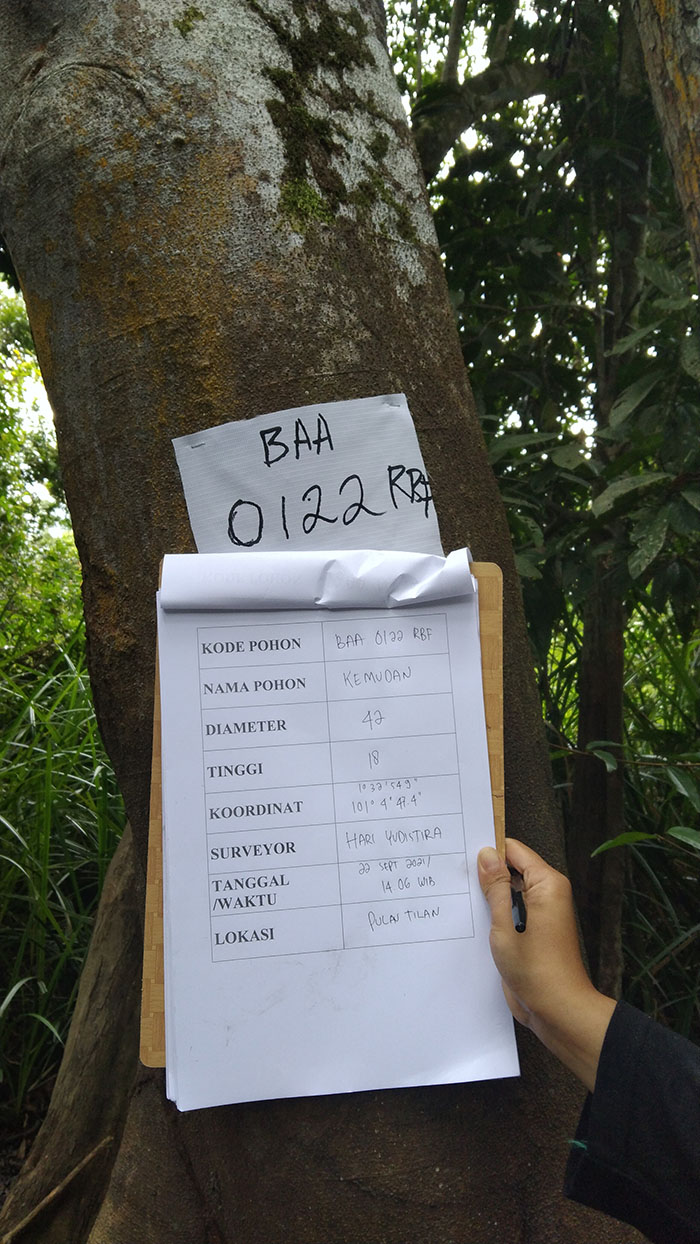 BAA
0122 RBF
KODE POHON BAA 0122 RBF
NAMA POHON KEMUDAN
DIAMETER 42
TINGGI 18
KOORDINAT 1° 32' 54.9"
101° 4' 47.4"
SURVEYOR HARI YUDISTIRA
TANGGAL 22 SEPT 2021/
/WAKTU 14.06 WIB
LOKASI PULAU TILAN